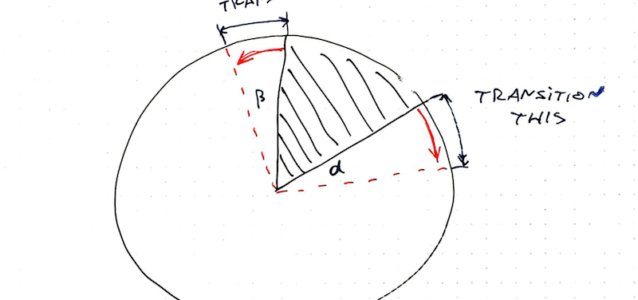 β
TRANSITION
THIS
α